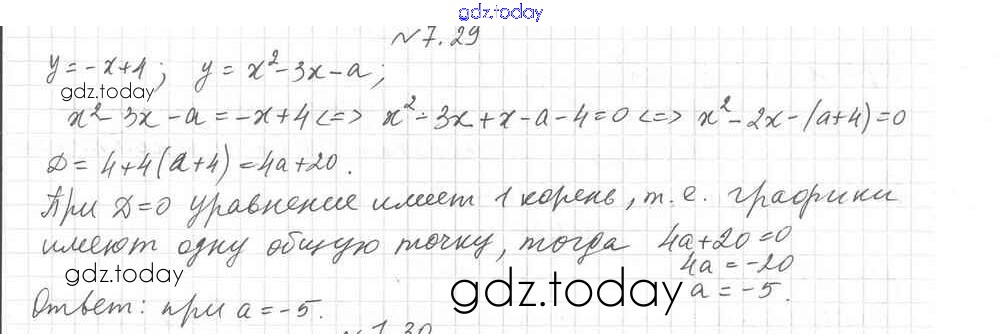 gdz.today
№7.29
y = -x+4; y = x² - 3x - a;
gdz.today
x² - 3x - a = -x + 4 <=> x² - 3x + x - a - 4 = 0 <=> x² - 2x - (a+4) = 0
Д = 4 + 4(a+4) = 4a+20.
При Д=0 уравнение имеет 1 корень, т.е. графики
имеют одну общую точку, тогда 4a+20=0
gdz.today
4a = -20
gdz.today
a = -5.
Ответ: при a = -5.